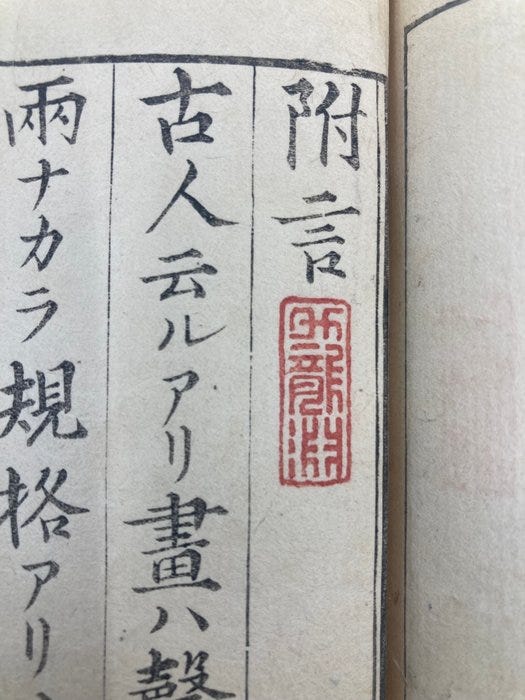 附言
古人云ルアリ畫ハ聲
兩ナカラ規格アリ